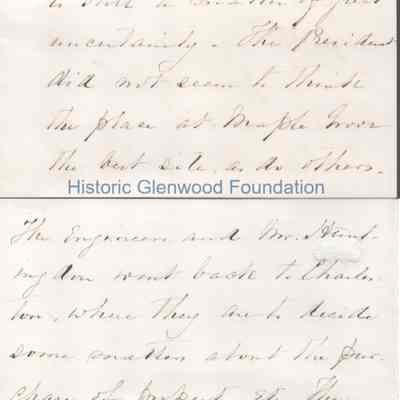 is still a matter of great
uncertainty. The President
did not seem to think
the place at Maple Grove
the best site, as do others.
Historic Glenwood Foundation
The Engineers and Mr. Hunt-
ingdon went back to Charles-
ton, where they are to decide
some matters about the pur-
chase of property at the